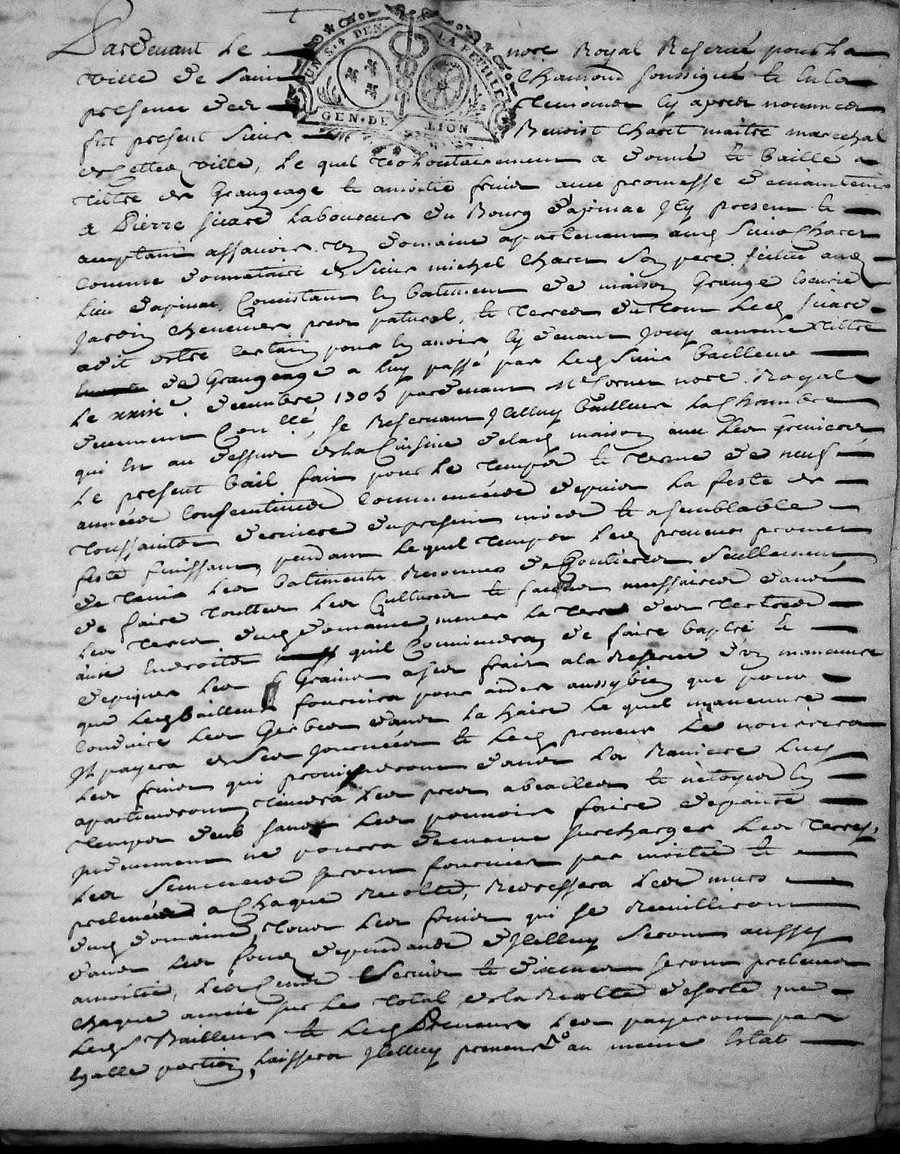 UN S. 4 DEN. LA FEUILLE
GEN. DE LION
Pardevant Le nore. Royal Reservé pour La
ville de Saint Chamond soussigné & en la
présence des Temoins cy apres nommés
fut present Sieur Benoist Charet maitre marechal
de cette ville, Le quel volontairement a donné & baille a
titre de Grangeage & amoitié fruits avec promesse de maintenir
a Pierre Laboureur du Bourg present &
acceptant assavoir un domaine apartenant aud. Sieur Charet
comme donnataire de Sieur michel Charet son pere, scitué aud.
Lieu Consistant en batiment de maison Grange Ecurie
Jardin Chenevier prés patural, & Terres du tout Led.
a dit estre certain pour en avoir cy devant Jouy a mesme tittre
de Grangeage a luy passé par Led. Sieur bailleur
Le xxixe. decembre 1705 pardevant Me nore. Royal
deuement Conllé, se Reservant Jcelluy bailleur La Chambre
qui est au dessus de la Cuisine de lad. maison avec Les Greniers
Le present bail fait pour Le temps & terme de neuf
années consecutives commencées depuis La feste de
Toussaints derniere du present mois & a semblable
feste finissant pendant Lequel temps Led. preneur promet
de tenir Les batiments de Goutieres seullement
de faire touttes Les Cultures & façons necessaires dans
Les Terres dud. Domaine, mener La terre des
aux Endroits quil Conviendra, de faire battre &
Les Grains a ses frais a la Reserve d'un maneuvre
que Led. bailleur fournira pour aider aussy bien que pour
conduire Les Gerbes dans Le Laire Le quel maneuvre
Jl payera de ses Journées & Led. preneur Le nourrira
Les fruits qui proviendront dans La Raviere Luy
apartiendront, tiendra Les prés & netoyés en
temps deub sans Les pouvoir faire depaitre
ne pourra de mesme surcharger Les Terres,
Les Semences seront fournies par moitié &
prelevées a Chaque Recolte, Redressera Les murs
dud. Domaine, tous Les fruits qui se Reuilliront
dans Les fonds dependants d'Jcelluy seront aussy
amoitié, Les Cens Servis & dixmes seront prelevés
Chaque année sur Le total de la Recolte de sorte que
Led. Bailleur & Led. Preneur Les payeront par
Egalle portion, Laissera Jcelluy preneur au mesme Estat